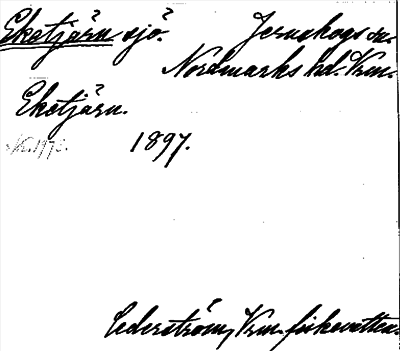 Eketjärn sjö. Jernskogs sn.
Nordmarks hd. Vrm.
Eketjärn.
1897.
Cederström, Vrm. fiskevatten.